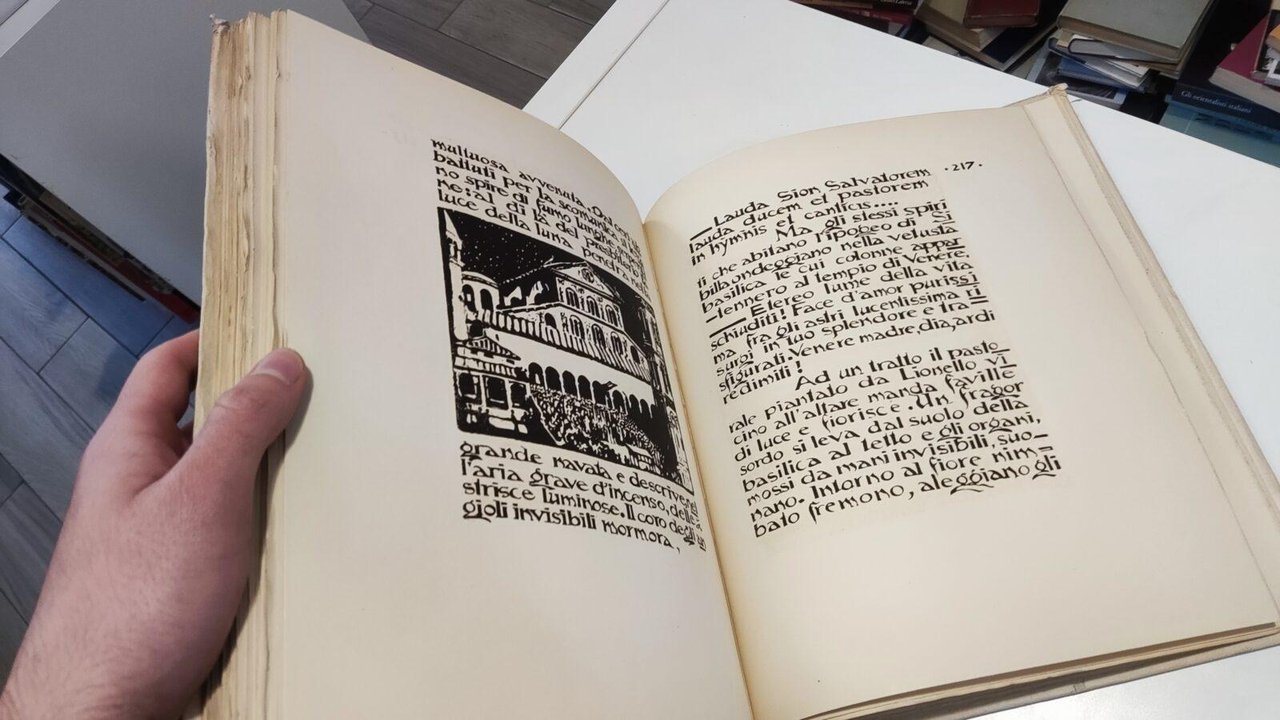 multuosa avvenuta. Odo
battuti per la scomande
no spire di fumo lunghe
ne: al di là del presbiterio
luce della luna penetra
grande navata e descrive nel
l'aria grave d'incenso, delle
strisce luminose. Il coro degli
gioli invisibili mormora,
·217·
Lauda Sion Salvatorem
lauda ducem et pastorem
in hymnis et canticis....
Ma gli stessi spiri
ti che abitano l'ipogeo di Si
billa ondeggiano nella vetusta
basilica le cui colonne appar
tennero al tempio di Venere.
— Etereo lume della vita
schiuditi! Face d'amor purissi
ma fra gli astri lucentissima ri
surgi in tuo splendore e tra
sfigurati. Venere madre, dia, ardi
redimiti!
Ad un tratto il pasto
rale piantato da Lionello vi
cino all'altare manda faville
di luce e fiorisce. Un fragor
sordo si leva dal suolo della
basilica al tetto e gli organi,
mossi da mani invisibili, suo-
nano. Intorno al fiore nim-
bato fremono, aleggiano gli
Gli orientalisti italiani